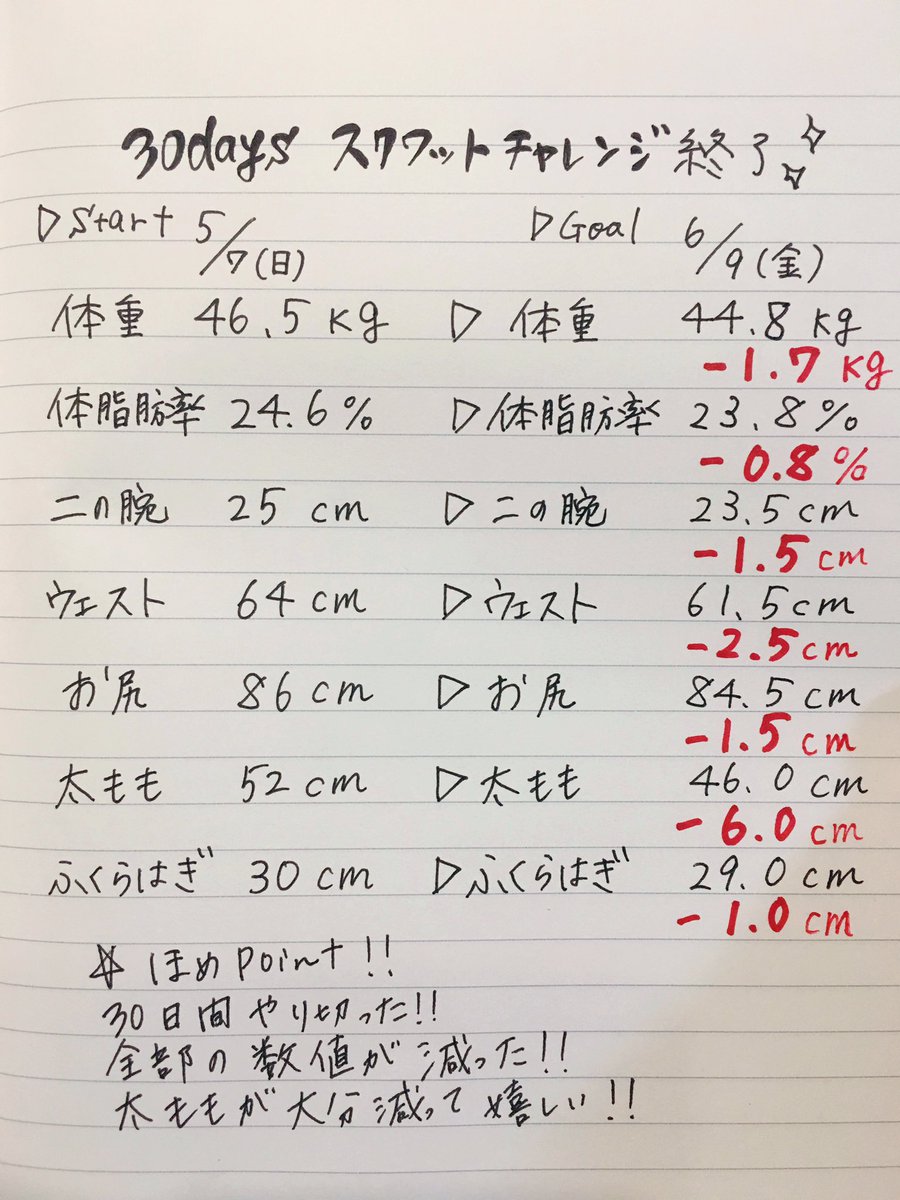 30days スクワットチャレンジ終了
▷Start 5/7(日) ▷Goal 6/9(金)
体重 46.5kg ▷体重 44.8kg
-1.7kg
体脂肪率 24.6% ▷体脂肪率 23.8%
-0.8%
二の腕 25cm ▷二の腕 23.5cm
-1.5cm
ウェスト 64cm ▷ウェスト 61.5cm
-2.5cm
お尻 86cm ▷お尻 84.5cm
-1.5cm
太もも 52cm ▷太もも 46.0cm
-6.0cm
ふくらはぎ 30cm ▷ふくらはぎ 29.0cm
-1.0cm
☆ほめPoint!!
30日間やり切った!!
全部の数値が減った!!
太ももが大分減って嬉しい!!